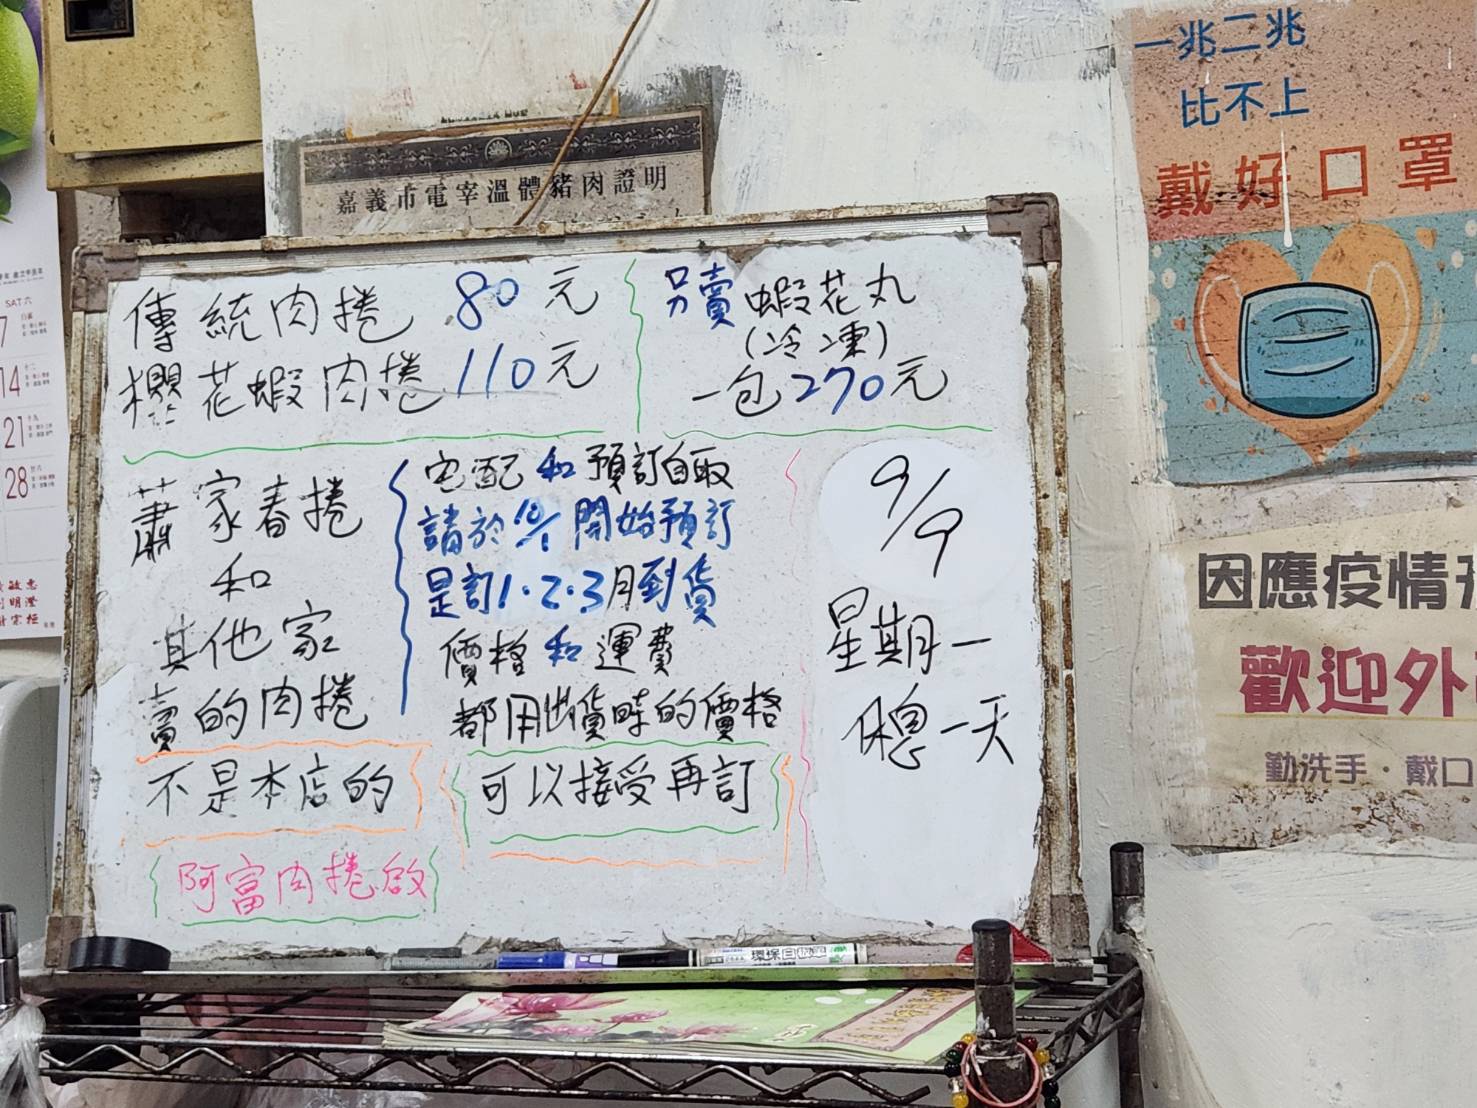 嘉義市電宰溫體豬肉證明
傳統肉捲 80元
櫻花蝦肉捲 110元
另賣蝦花丸
(冷凍)
一包270元
蕭家春捲
和
其他家
賣的肉捲
不是本店的
阿富肉捲啟
宅配和預訂自取
請於10/1開始預訂
是訂1.2.3月到貨
價格和運費
都用出貨時的價格
可以接受再訂
9/9
星期一
休息一天
一兆二兆
比不上
戴好口罩
因應疫情
歡迎外
勤洗手·戴口
SAT 六
7
14
21
28
敏惠
明澄
環保